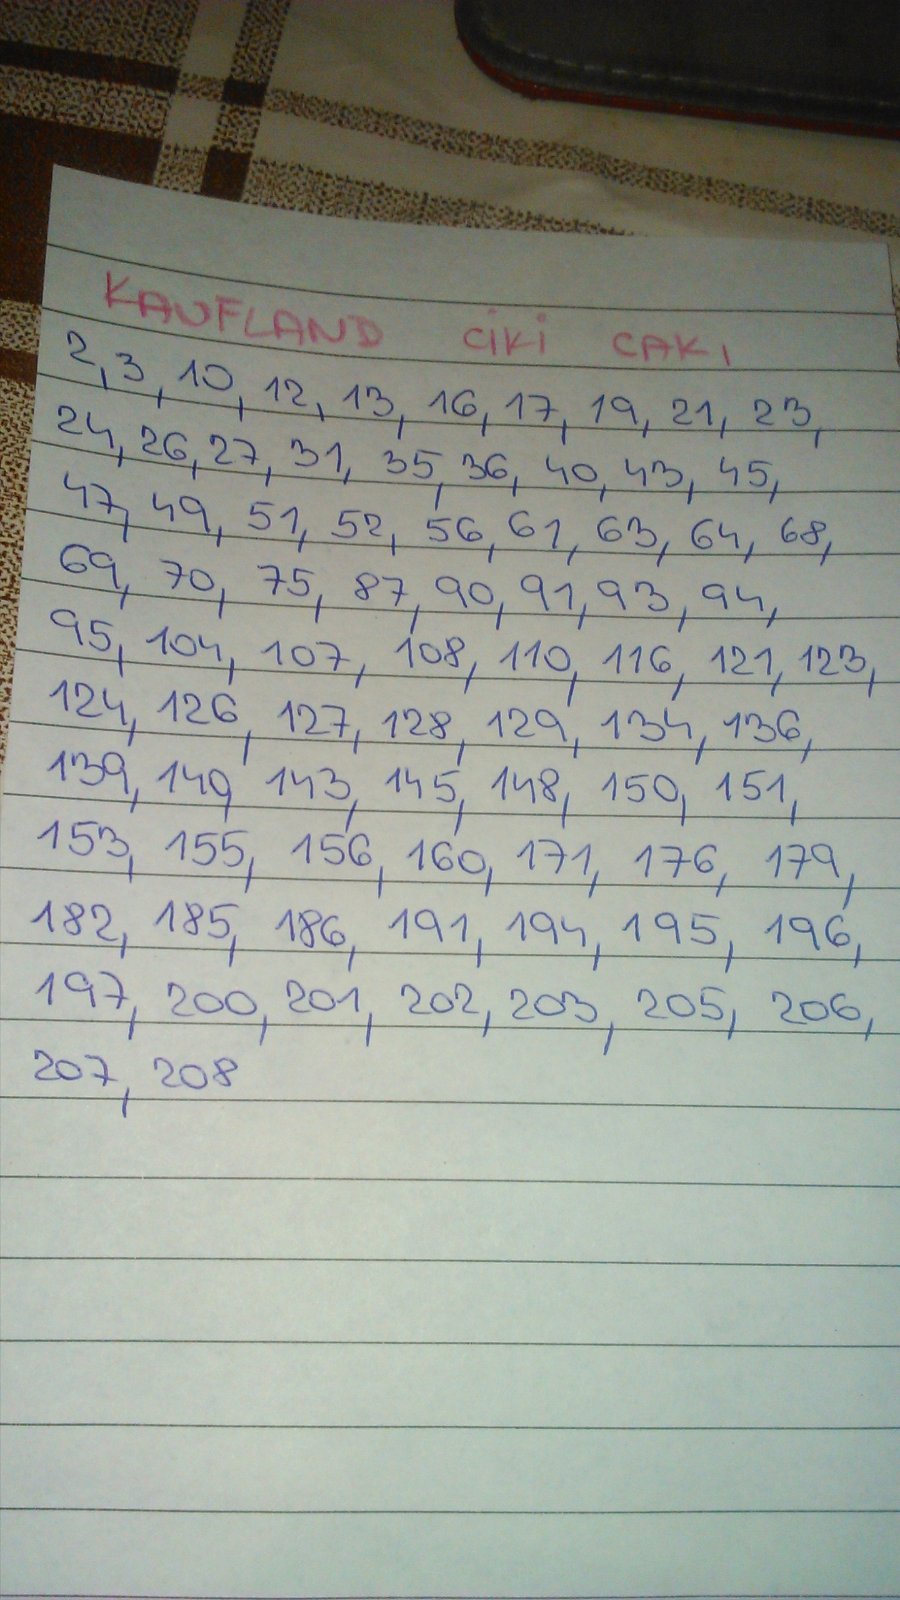 KAUFLAND CiKi CAKI
2, 3, 10, 12, 13, 16, 17, 19, 21, 23,
24, 26, 27, 31, 35, 36, 40, 43, 45,
47, 49, 51, 52, 56, 61, 63, 64, 68,
69, 70, 75, 87, 90, 91, 93, 94,
95, 104, 107, 108, 110, 116, 121, 123,
124, 126, 127, 128, 129, 134, 136,
139, 140, 143, 145, 148, 150, 151,
153, 155, 156, 160, 171, 176, 179,
182, 185, 186, 191, 194, 195, 196,
197, 200, 201, 202, 203, 205, 206,
207, 208